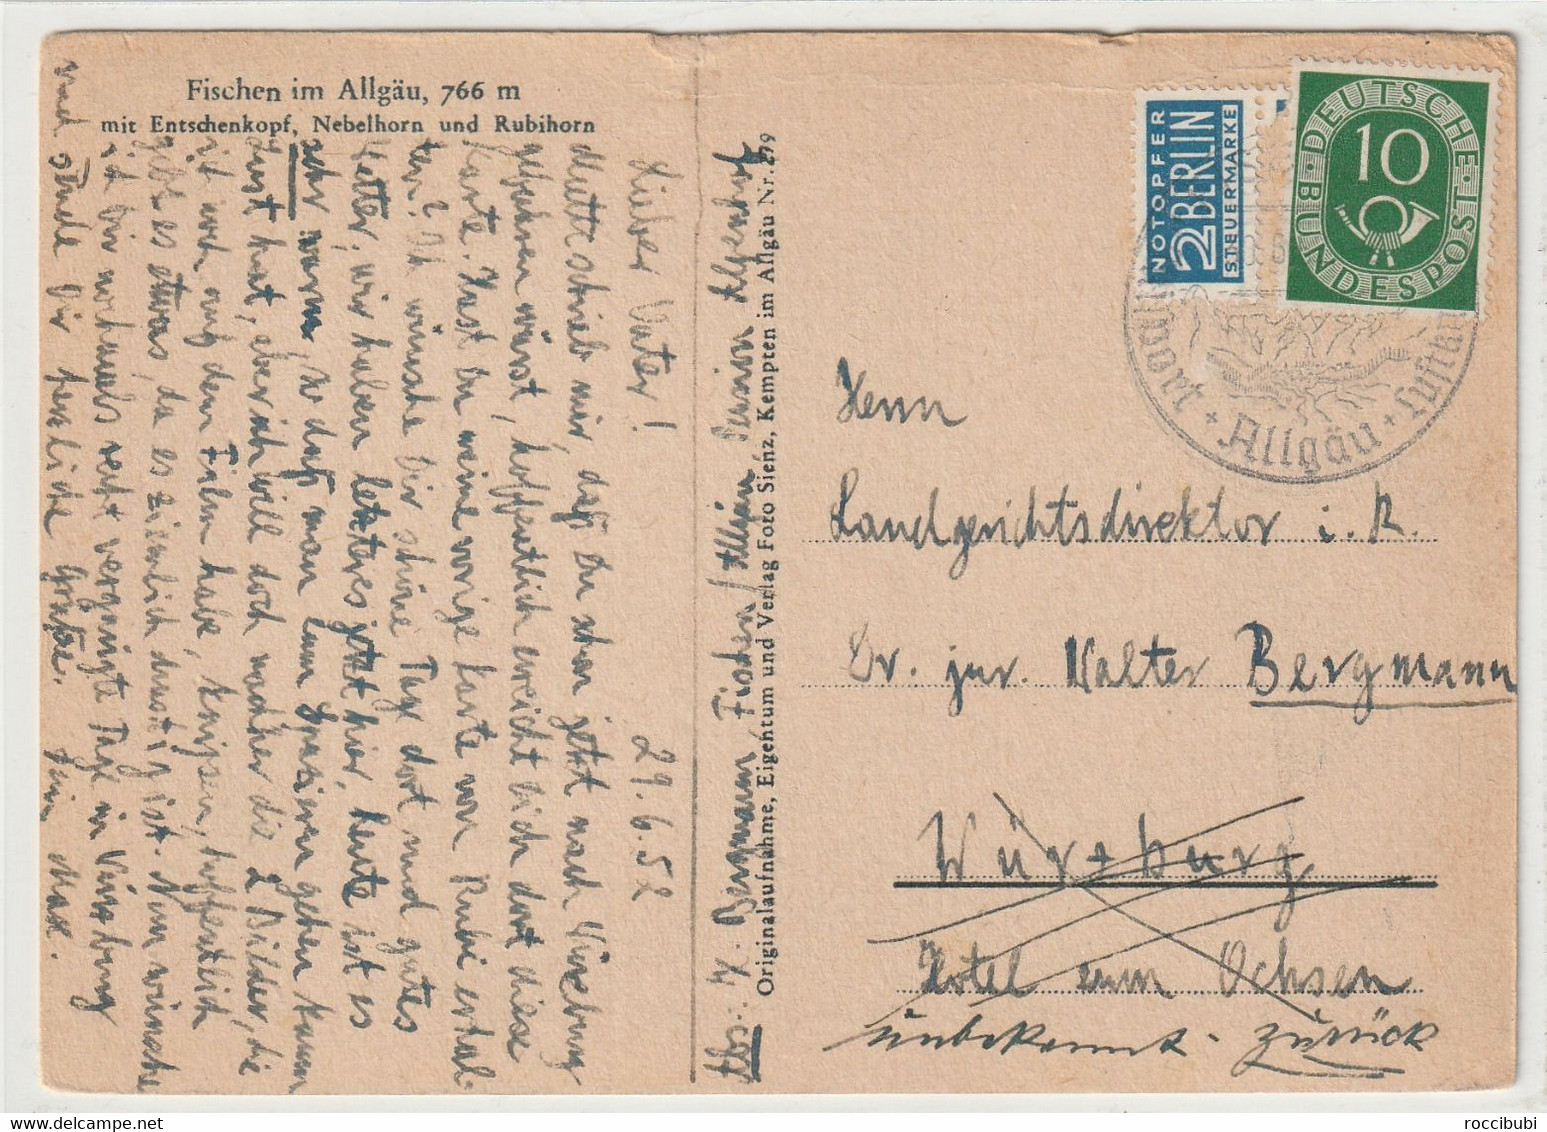 Fischen im Allgäu, 766 m
mit Entschenkopf, Nebelhorn und Rubihorn
29.6.52
Lieber Vater!
Mutti schrieb mir, daß Du schon jetzt nach Würzburg
gefahren wirst, hoffentlich erreicht Dich dort diese
Karte. Hast Du meine vorige Karte von Rubi erhal-
ten? Ich wünsche Dir schöne Tage dort und gutes
Wetter, wir haben letzteres jetzt hier, heute ist es
sehr warm, so daß man zum Spazieren gehen kaum
Lust hat, aber ich will doch nachher die 2 Bilder, die
ich noch auf dem Film habe, knipsen, hoffentlich
gibt es etwas, da es ziemlich dunstig ist. Nun wünsche
ich Dir nochmals recht vergnügte Tage in Würzburg
und sende Dir herzliche Grüße. Dein Max.
Abs.: M. Bergmann, Fischen/Allgäu, Pension Alpenhof
Originalaufnahme, Eigentum und Verlag Foto Sienz, Kempten im Allgäu Nr. 299
NOTOPFER
2 BERLIN
STEUERMARKE
DEUTSCHE BUNDESPOST
10
Allgäu
Herrn
Landgerichtsdirektor i. R.
Dr. jur. Walter Bergmann
Würzburg
Hotel zum Ochsen
unbekannt - zurück
roccibubi